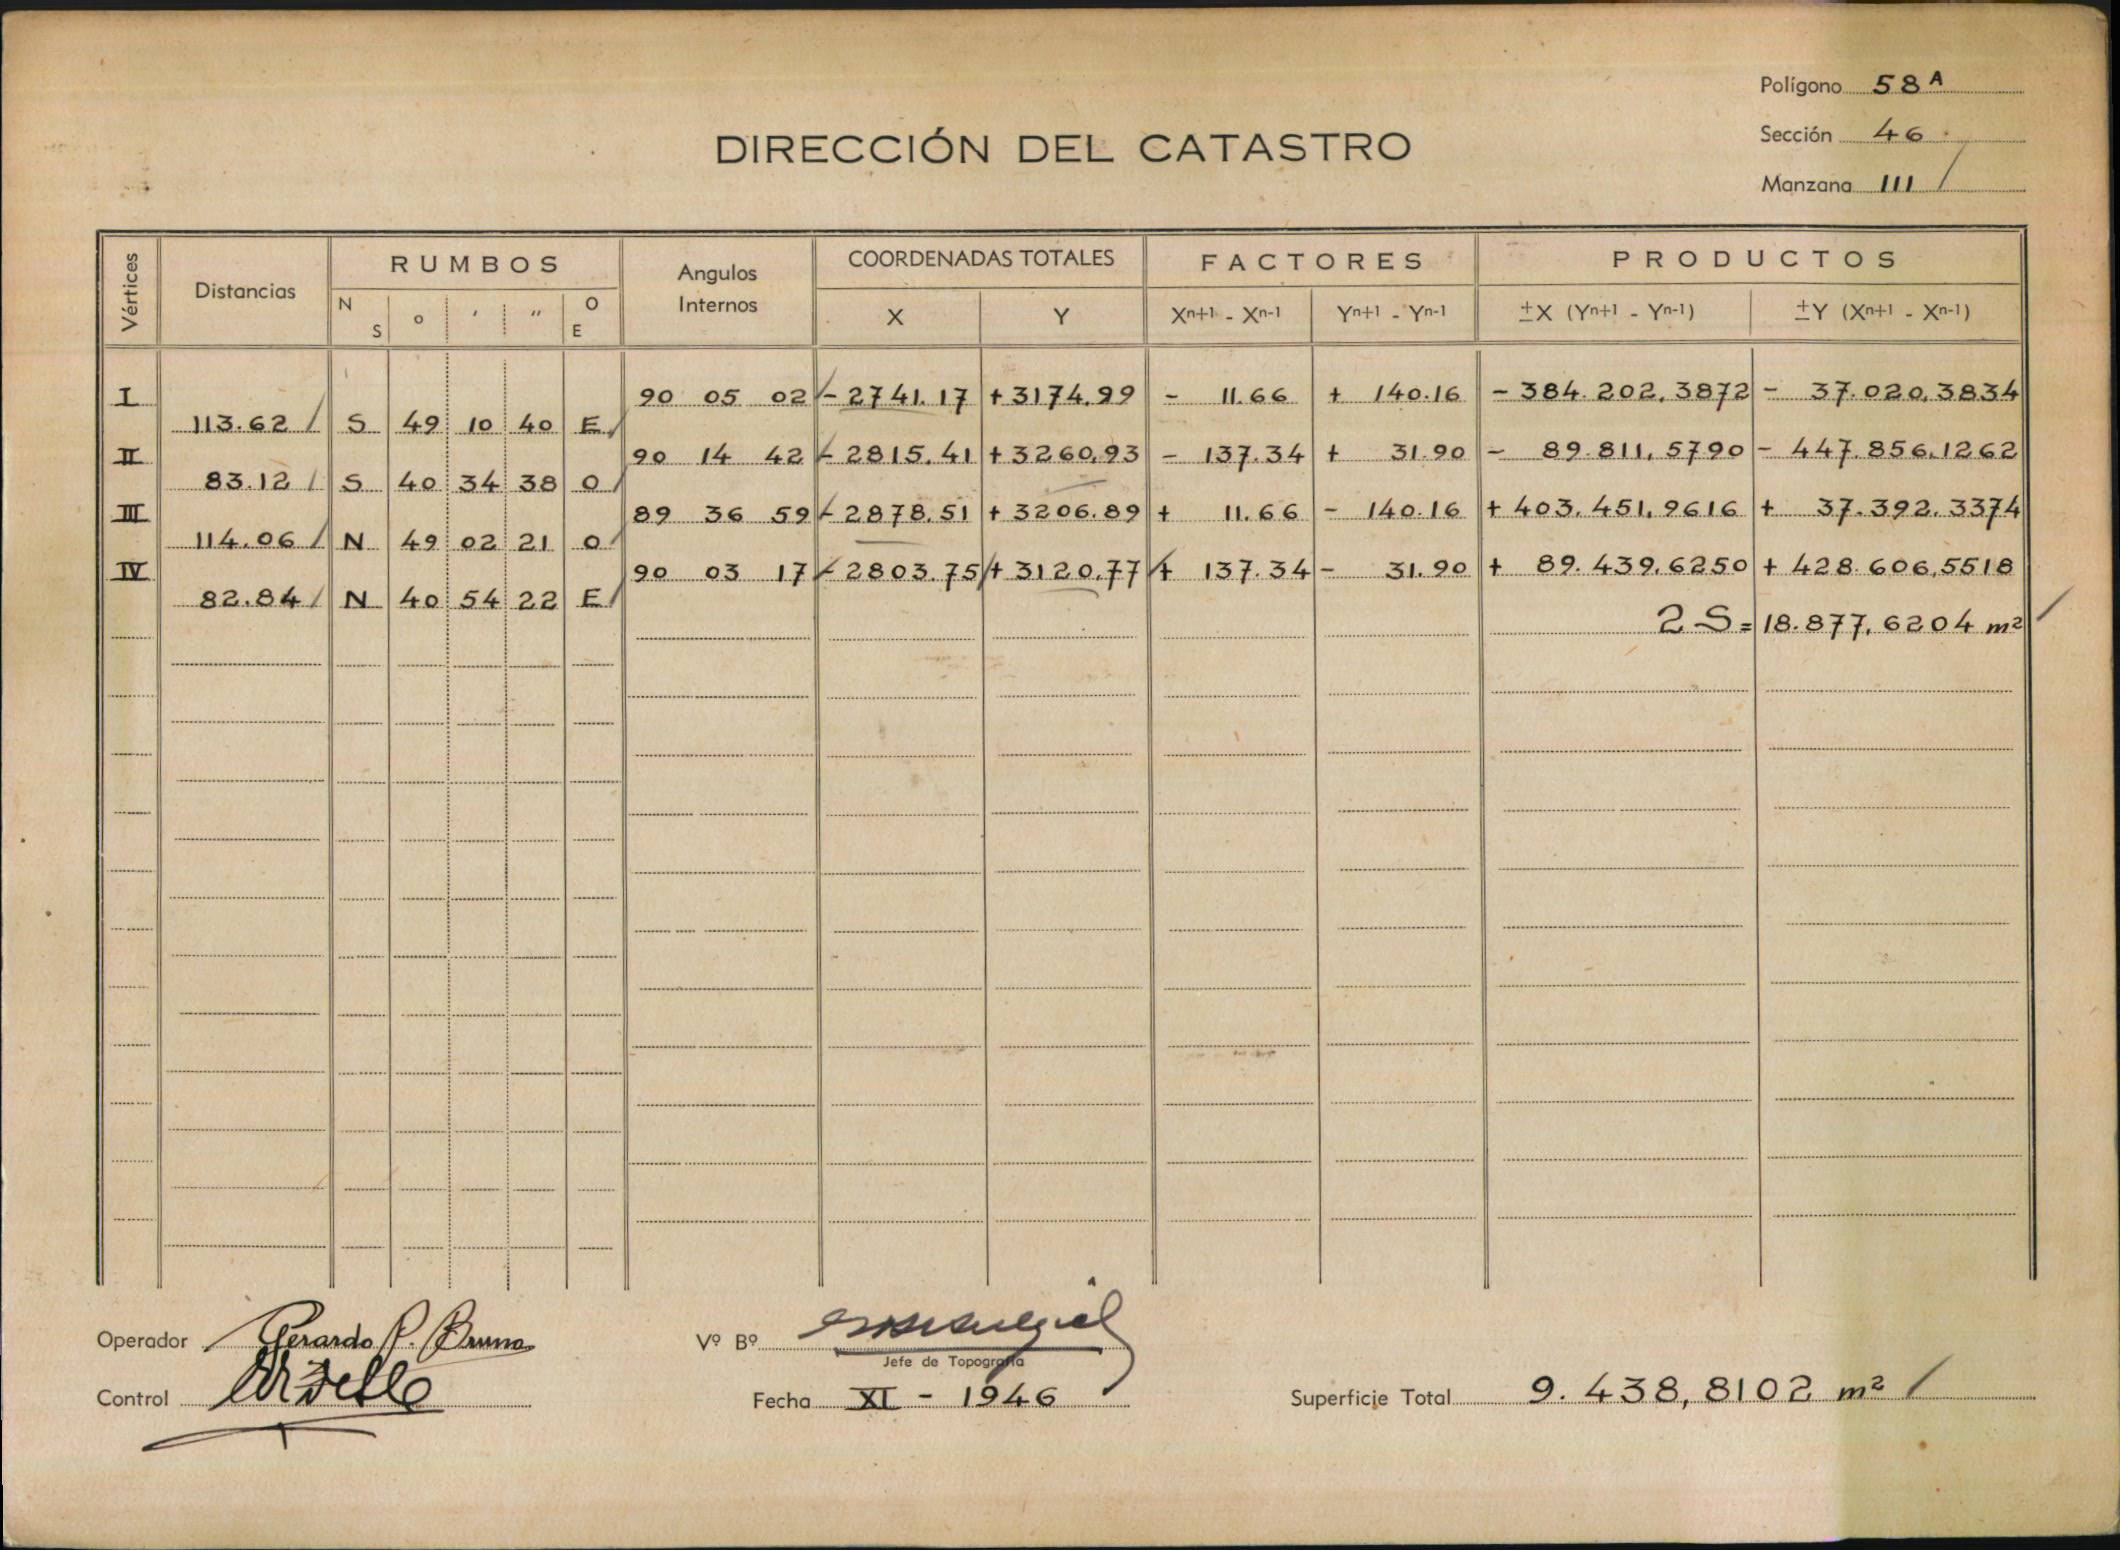 Polígono 58 A
DIRECCIÓN DEL CATASTRO
Sección 46
Manzana 111 /
Vértices Distancias RUMBOS Angulos Internos COORDENADAS TOTALES FACTORES PRODUCTOS
N S o ′ ″ O E X Y Xn+1 - Xn-1 Yn+1 - Yn-1 ±X (Yn+1 - Yn-1) ±Y (Xn+1 - Xn-1)
I 90 05 02 - 2741.17 + 3174.99 - 11.66 + 140.16 - 384.202,3872 - 37.020,3834
113.62 / S 49 10 40 E /
II 90 14 42 - 2815.41 + 3260.93 - 137.34 + 31.90 - 89.811,5790 - 447.856,1262
83.12 / S 40 34 38 O /
III 89 36 59 - 2878.51 + 3206.89 + 11.66 - 140.16 + 403.451,9616 + 37.392,3374
114.06 / N 49 02 21 O /
IV 90 03 17 - 2803.75 + 3120.77 + 137.34 - 31.90 + 89.439,6250 + 428.606,5518
82.84 / N 40 54 22 E /
2 S = 18.877,6204 m² /
Operador Gerardo P. Bruno
Vº Bº
Jefe de Topografía
Control
Fecha XI - 1946
Superficie Total 9.438,8102 m² /